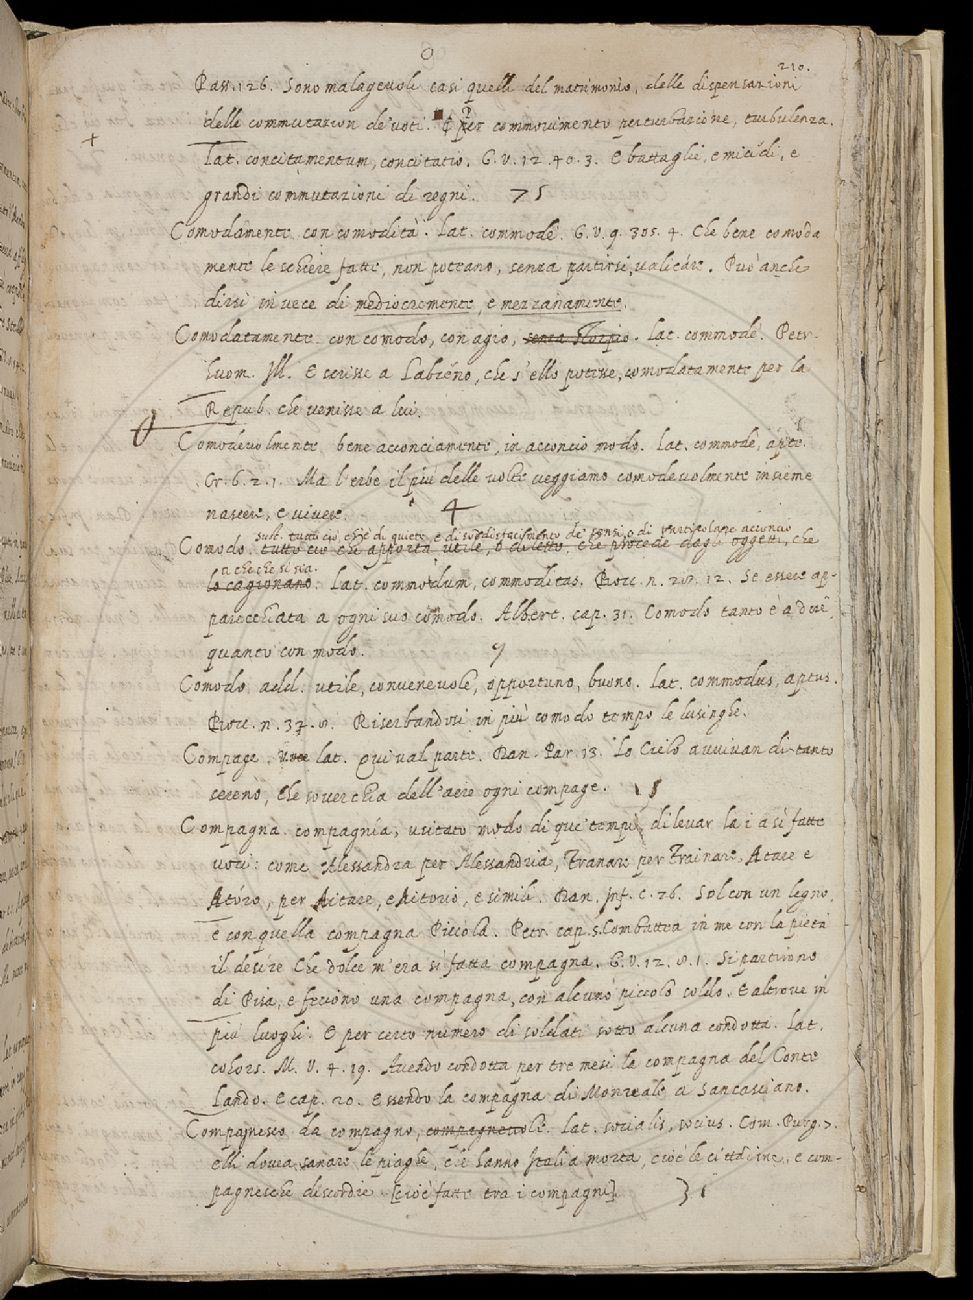 210.
Pass. 126. Sono malagevoli casi quelli del matrimonio, delle dispensazioni
delle commutazion de' voti. E per commovimento perturbazione, turbulenza.
Lat. concitamentum, concitatio. G. V. 12. 40. 3. E battaglie, e micidi, e
grandi commutazioni di regni. 75
Comodamente. con comodità. Lat. commodè. G. V. 9. 305. 4. Che bene comoda
mente le schiere fatte, non poteano, senza partirsi, valicare. Può anche
dirsi in vece di mediocremente, e mezzanamente.
Comodatamente. con comodo, con agio, senza storpio. Lat. commodè. Petr.
huom. Ill. E scrisse a Labieno, che s'ello potesse, comodatamente per la
Repub. che venisse a lui.
Comodevolmente, bene acconciamente, in acconcio modo. Lat. commodè, aptè.
Cr. 6. 2. 1. Ma l'erbe il più delle volte veggiamo comodevolmente insieme
nascere, e vivere. 4
sust. tutto ciò, ch'è di quiete, e di soddisfacimento de' sensi, o di particolare acconcio
Comodo. tutto ciò che apporta utile, o diletto, che procede dagli oggetti, che
di che che si sia.
lo cagionano. Lat. commodum, commoditas. Bocc. n. 20. 12. Se essere ap-
parecchiata a ogni suo comodo. Albert. cap. 31. Comodo tanto è a dire,
quanto con modo. 9
Comodo add. utile, convenevole, opportuno, buono. Lat. commodus, aptus.
Bocc. n. 37. 8. Riserbandosi in più comodo tempo le lusinghe.
Compage. Voce lat. Qui val parte. Dan. Par. 13. Lo Cielo avvivan di tanto
sereno, Che soverchia dell'aere ogni compage. 15
Compagna. compagnía, usitato modo di que' tempi, di levar la i a sì fatte
voci: come Alessandra per Alessandria, Tranare per Trainare, Atare e
Atório, per Aitare, e Aitorio, e simili. Dan. Inf. c. 26. Sol con un legno,
e con quella compagna Picciola. Petr. cap. 5. Combattea in me con la pietà
il desire Che dolce m'era sì fatta compagna. G. V. 12. 8. 1. Si partirono
di Pisa, e feciono una compagna, con alcuno piccolo soldo. E altrove in
più luoghi. E per certo numero di soldati sotto alcuna condotta. Lat.
cohors. M. V. 4. 19. Avendo condotta per tre mesi la compagna del Conte
Lando. E cap. 20. Essendo la compagna di Monreale a Sancasciano.
Compagnesco da compagno, compagnevole. Lat. socialis, socius. Com. Purg. 7.
elli dovea sanare le piaghe, c'hanno Italia morta, cioè le cittadine, e com-
pagnesche discordie [cioè fatte tra i compagni] 31